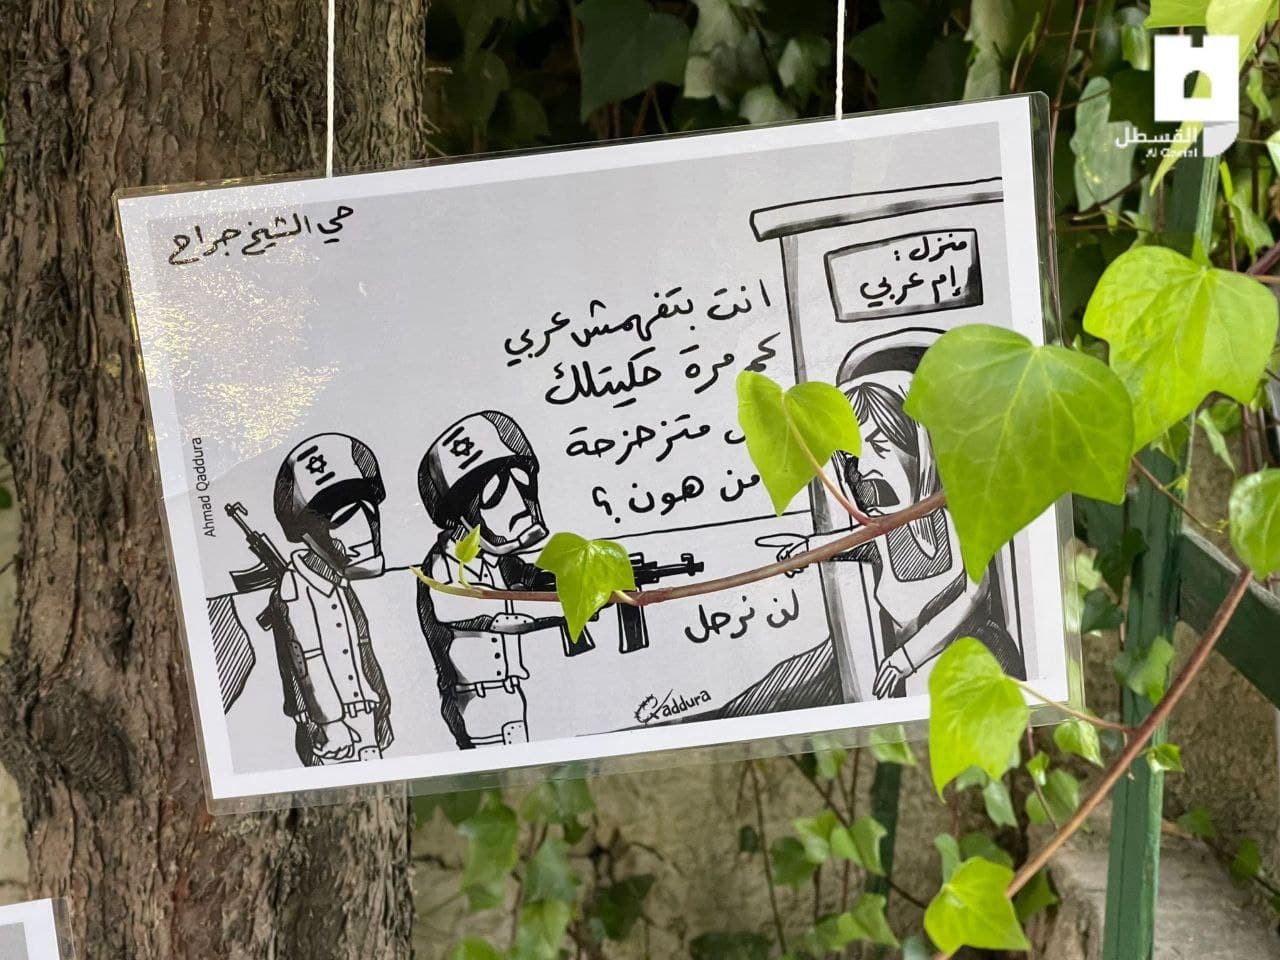 القسطل
Al Qastal
حي الشيخ جراح
منزل :
إم عربي
انت بتفهمش عربي
كم مرة حكيتلك
متزحزحة
من هون ؟
لن نرحل
Ahmad Qaddura
Qaddura